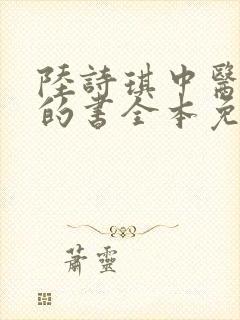 陸詩琪中醫
的書全本免
蕭靈